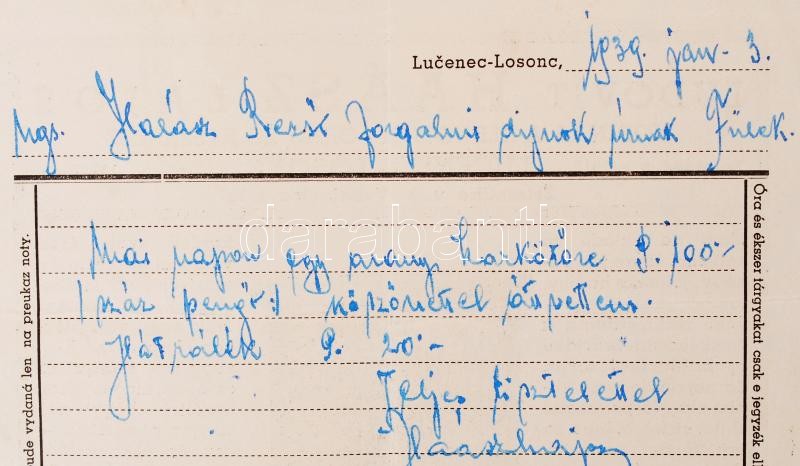 Lučenec-Losonc, 1939. jan. 3.
Ngs. Halász Rezső forgalmi dijnok úrnak Fülek.
Mai napon egy arany karkötőre P. 100.-
/: száz pengő :/ köszönettel átvettem.
Hátralék P. 20.-
Teljes tisztelettel
darabanth
Óra és ékszer tárgyakat csak e jegyzék el
bude vydaná len na preukaz noty.